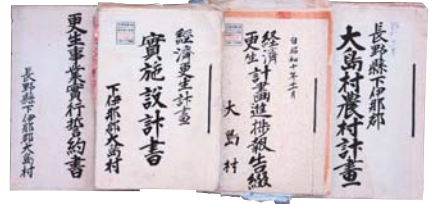 長野縣下伊那郡
大島村農村計畫
自昭和十年二月
経済
更生計畫進捗報告綴
大島村
經濟更生計畫
實施設計書
下伊那郡大島村
更生事業實行誓約書
長野縣下伊那郡大島村